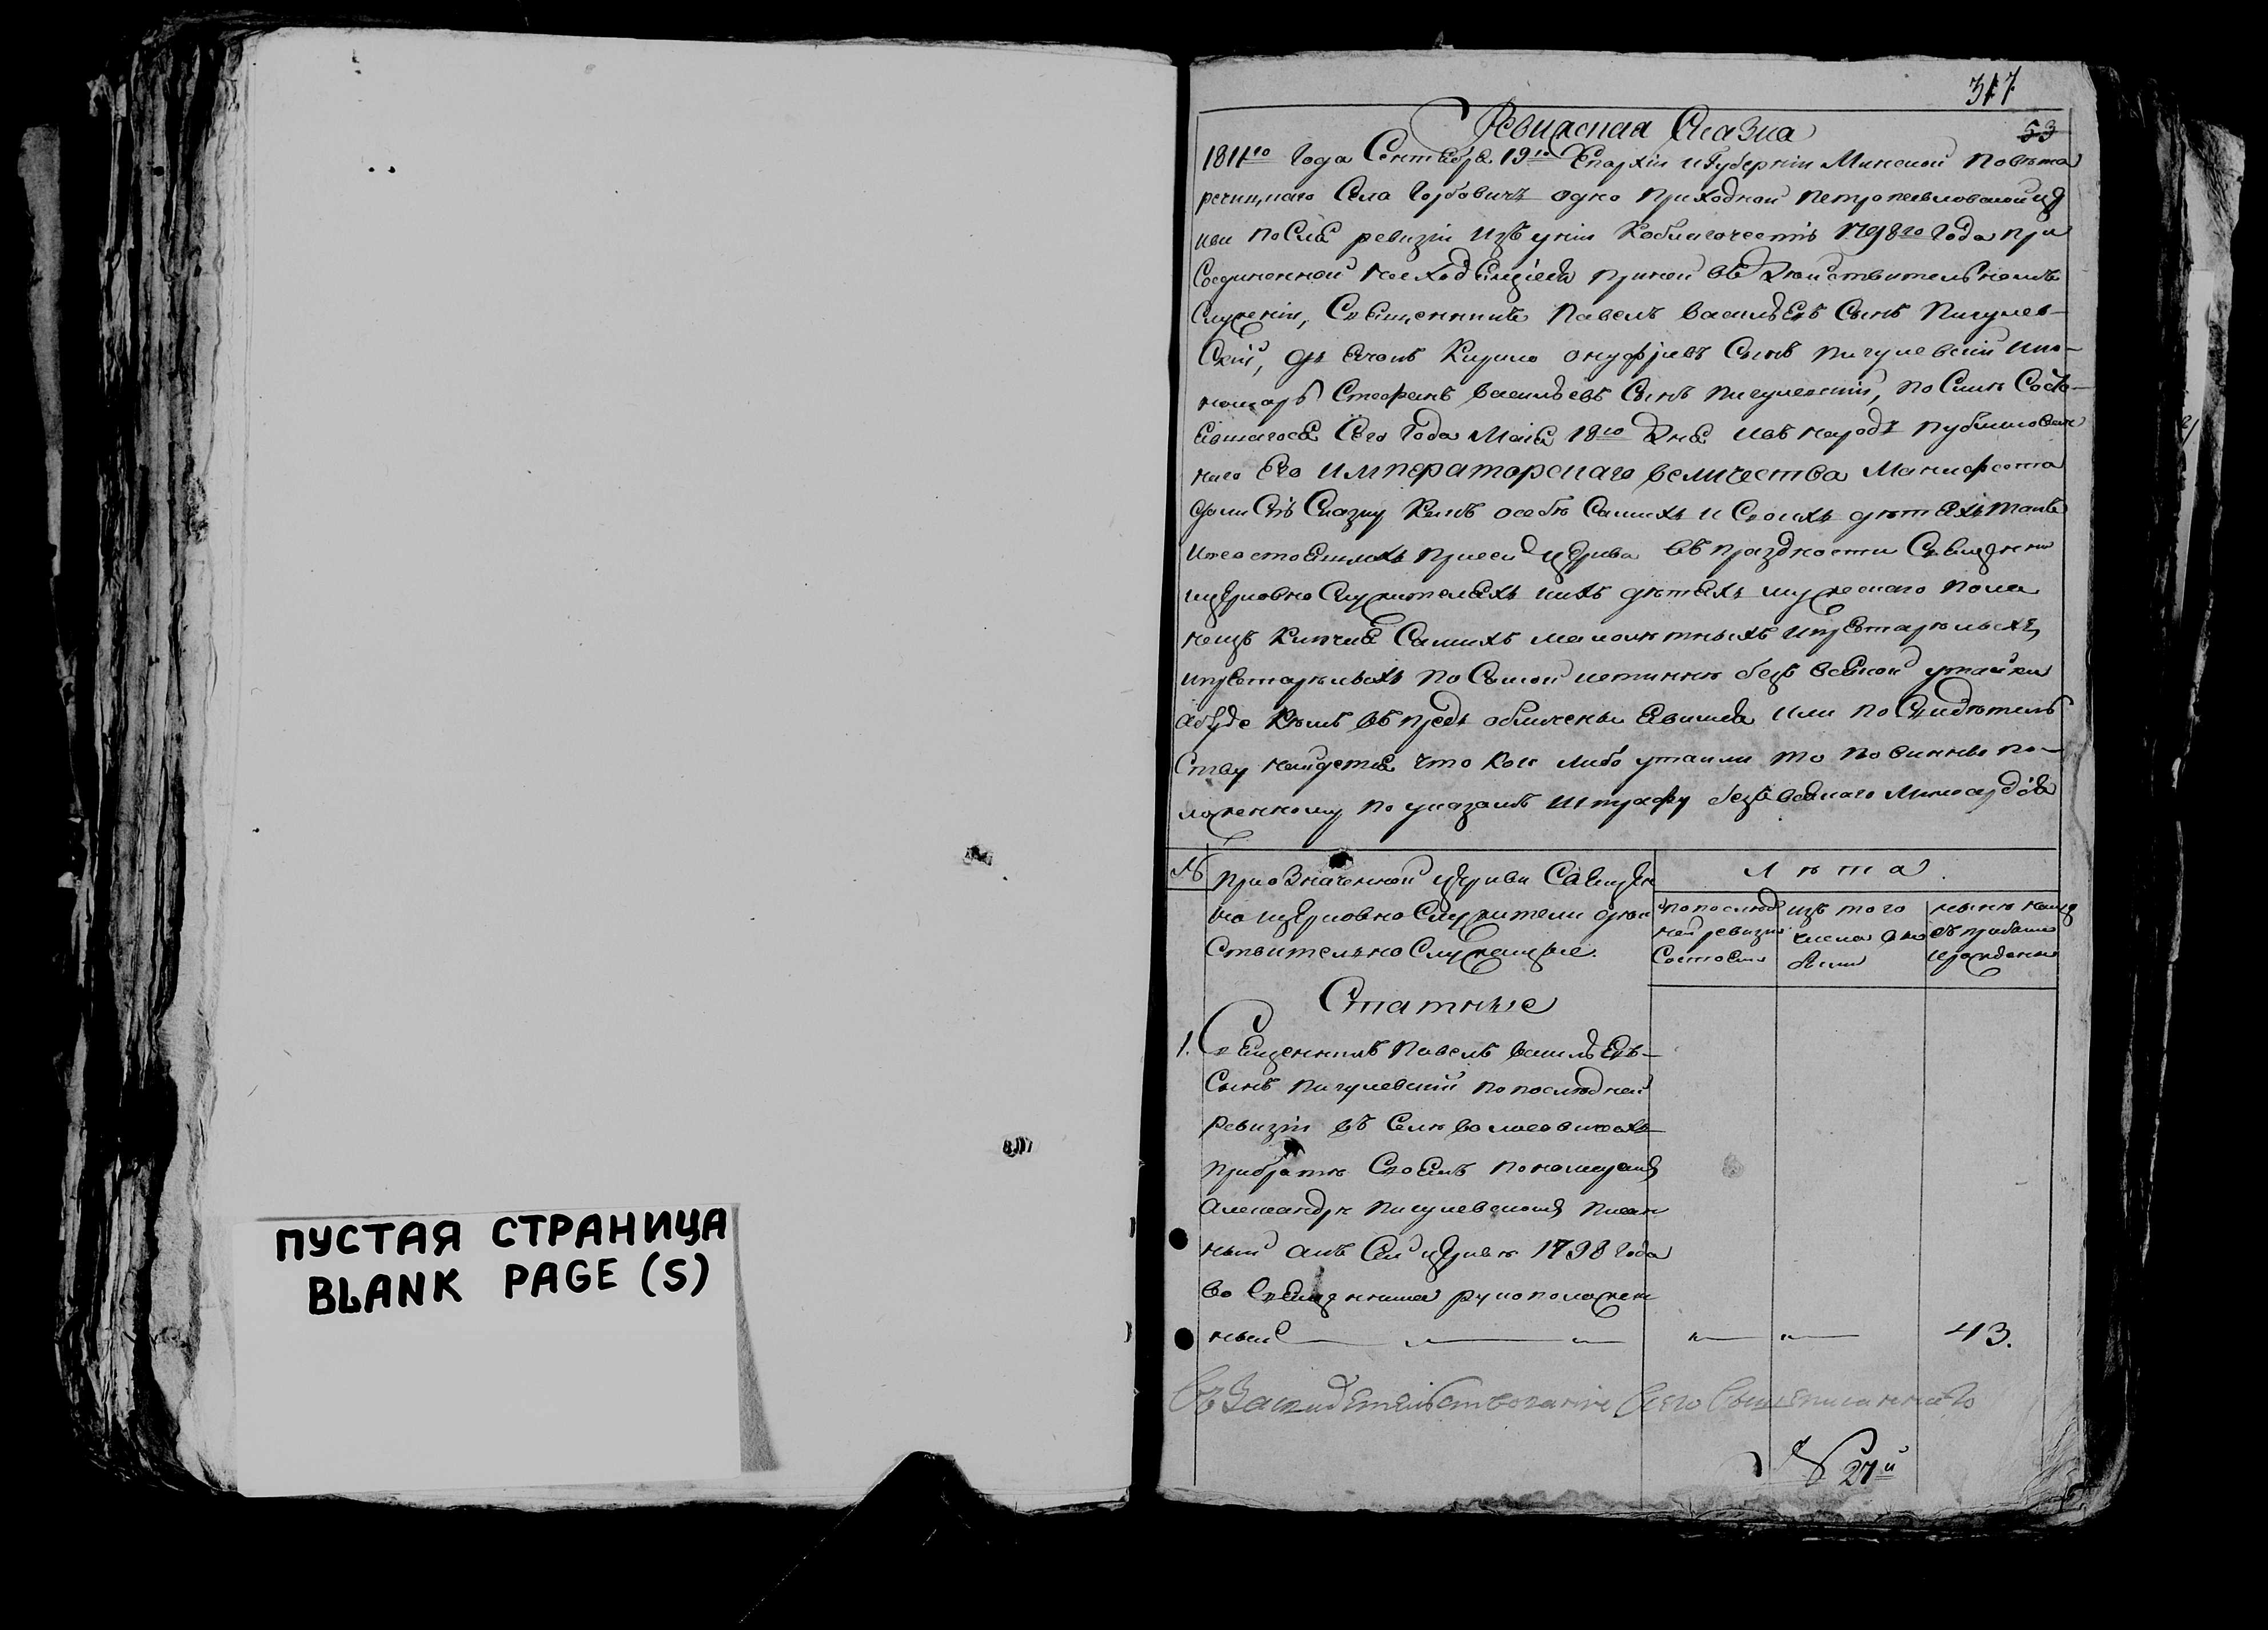 ПУСТАЯ СТРАНИЦА
BLANK PAGE (S)
317
53
Ревизская Сказка
1811го Года Сентября 19го Епархіи и Губерніи Минской повѣта
речицкаго Села Горбовичъ одно приходной петропавловской цер
кви послѣ ревизіи изъ уніи ко благочестію 1798го Года при
соединенной находящіеся при ней въ дѣйствительномъ
служеніи, Священникъ Павелъ Васильевъ Сынъ Пигулев-
скій, дьячокъ Кирило Онуфріевъ Сынъ Пигулевскій и по-
номарь Стефанъ Васильевъ Сынъ Пигулевскій, по силѣ состо-
явшагося Сего Года Маія 18го дня и въ народъ публикован
наго Его Императорскаго величества Манифеста
дали Сію Сказку какъ о себѣ самихъ и своихъ дѣтяхъ такъ
и не состоящихъ при сей церкви въ праздности священно
и церковно служителяхъ и ихъ дѣтяхъ мужескаго пола
не изключая самихъ малолѣтныхъ и престарѣлыхъ
и престарѣлыхъ по самой истиннѣ безъ всякой утайки
а буде кѣмъ въ предь обличены явимся или по свидѣтель
ству найдется что кого либо утаили то повинны по-
ложенному по указамъ штрафу безъ всякаго Милосердія
№
при означенной церкви Священ
но и церковно служители дѣй
ствительно служащіе.
Лѣта.
по послѣд
ней ревизіи
состояли
изъ того
числа вы
были
нынѣ на лицо
съ прибыли
и рожденны
Статные
1. Священникъ Павелъ Васильевъ
Сынъ Пигулевскій по послѣдней
ревизіи въ Селѣ
при братѣ своемъ пономарѣ
Александрѣ Пигулевскомъ писан
ный а къ сей церквѣ 1798 года
во священника рукоположен
ный — — — — " — " — 43.
Въ Засвидетельствованіе Всего Вышеписаннаго
№ 27й